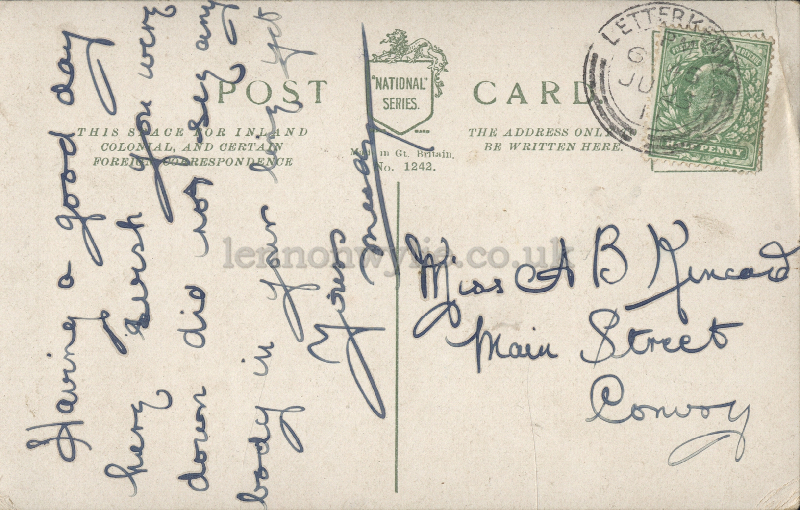 POST CARD
"NATIONAL"
SERIES.
THIS SPACE FOR INLAND
COLONIAL, AND CERTAIN
FOREIGN CORRESPONDENCE
THE ADDRESS ONLY
BE WRITTEN HERE.
Made in Gt. Britain.
No. 1242.
LETTERKENNY
HALFPENNY
Having a good day
here wish you were
down did not see any
body in your line yet
Yours
Miss A B Kincaid
Main Street
Convoy
lennonwylie.co.uk